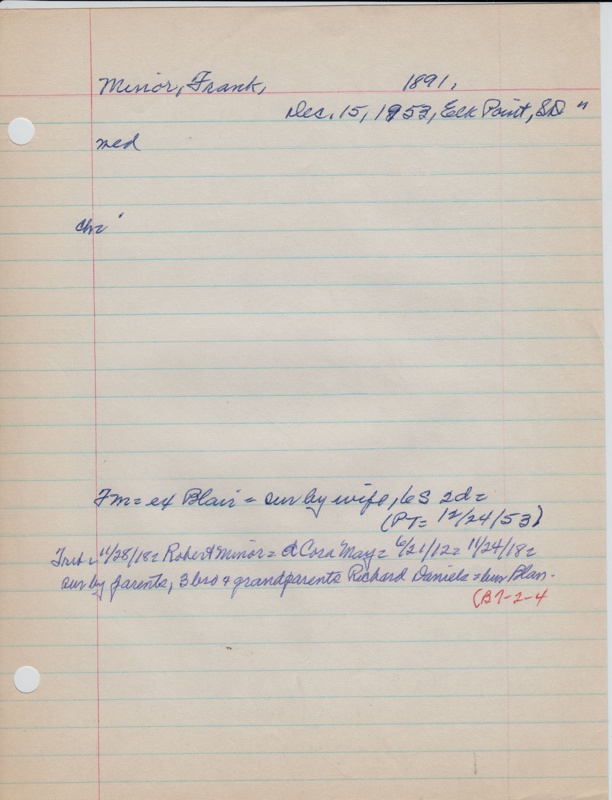 Minor, Frank, 1891,
Dec. 15, 1953, Elk Point, SD "
med
ch=
Fm= ex Blair = sur by wife, 6S 2d=
(PT= 12/24/53)
Trib= 11/28/18= Robert Minor= d Cora May= 6/21/12= 11/24/18=
sur by parents, 3 bro & grandparents Richard Daniels = bur Blair.
(B7-2-4